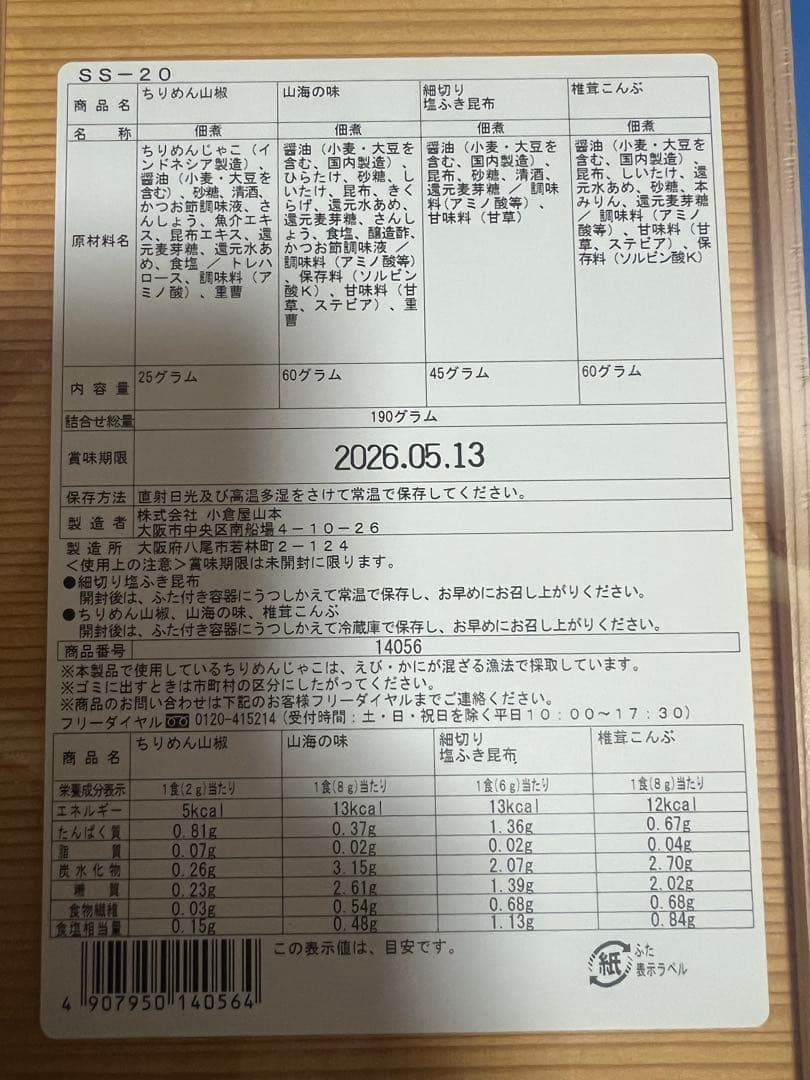 SS-20
商品名 ちりめん山椒 山海の味 細切り塩ふき昆布 椎茸こんぶ
名称 佃煮 佃煮 佃煮 佃煮
原材料名
ちりめんじゃこ(イ
ンドネシア製造)、
醤油(小麦・大豆を
含む)、砂糖、清酒、
かつお節調味液、さ
んしょう、魚介エキ
ス、昆布エキス、還
元麦芽糖、還元水あ
め、食塩/トレハ
ロース、調味料(ア
ミノ酸)、重曹
醤油(小麦・大豆を
含む、国内製造)、
ひらたけ、砂糖、し
いたけ、昆布、きく
らげ、還元水あめ、
還元麦芽糖、さんし
ょう、食塩、醸造酢、
かつお節調味液/
調味料(アミノ酸等)
、保存料(ソルビン
酸K)、甘味料(甘
草、ステビア)、重
曹
醤油(小麦・大豆を
含む、国内製造)、
昆布、砂糖、清酒、
還元麦芽糖/調味
料(アミノ酸等)、
甘味料(甘草)
醤油(小麦・大豆を
含む、国内製造)、
昆布、しいたけ、還
元水あめ、砂糖、本
みりん、還元麦芽糖
/調味料(アミノ
酸等)、甘味料(甘
草、ステビア)、保
存料(ソルビン酸K)
内容量 25グラム 60グラム 45グラム 60グラム
詰合せ総量 190グラム
賞味期限 2026.05.13
保存方法 直射日光及び高温多湿をさけて常温で保存してください。
製造者 株式会社 小倉屋山本
大阪市中央区南船場4-10-26
製造所 大阪府八尾市若林町2-124
<使用上の注意>賞味期限は未開封に限ります。
●細切り塩ふき昆布
開封後は、ふた付き容器にうつしかえて常温で保存し、お早めにお召し上がりください。
●ちりめん山椒、山海の味、椎茸こんぶ
開封後は、ふた付き容器にうつしかえて冷蔵庫で保存し、お早めにお召し上がりください。
商品番号 14056
※本製品で使用しているちりめんじゃこは、えび・かにが混ざる漁法で採取しています。
※ゴミに出すときは市町村の区分にしたがってください。
※商品のお問い合わせは下記のお客様フリーダイヤルまでご連絡ください。
フリーダイヤル 0120-415214(受付時間:土・日・祝日を除く平日10:00〜17:30)
商品名 ちりめん山椒 山海の味 細切り塩ふき昆布 椎茸こんぶ
栄養成分表示 1食(2g)当たり 1食(8g)当たり 1食(6g)当たり 1食(8g)当たり
エネルギー 5kcal 13kcal 13kcal 12kcal
たんぱく質 0.81g 0.37g 1.36g 0.67g
脂質 0.07g 0.02g 0.02g 0.04g
炭水化物 0.26g 3.15g 2.07g 2.70g
糖質 0.23g 2.61g 1.39g 2.02g
食物繊維 0.03g 0.54g 0.68g 0.68g
食塩相当量 0.15g 0.48g 1.13g 0.84g
この表示値は、目安です。
4 907950 140564
紙 ふた
表示ラベル